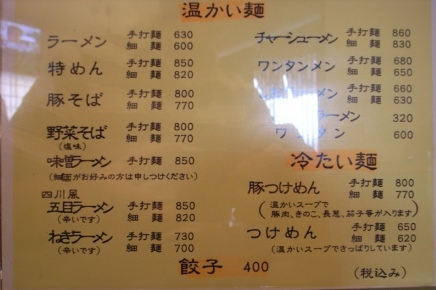 温かい麺
ラーメン 手打麺 630
細麺 600
特めん 手打麺 850
細麺 820
豚そば 手打麺 800
細麺 770
野菜そば 手打麺 800
(塩味) 細麺 770
味噌ラーメン 手打麺 850
(細麺がお好みの方は申しつけください)
四川風
五目ラーメン 手打麺 850
(辛いです) 細麺 820
ねぎラーメン 手打麺 730
(辛いです) 細麺 700
チャーシューメン 手打麺 860
細麺 830
ワンタンメン 手打麺 680
細麺 650
手打麺 660
細麺 630
ラーメン 320
ワンタン 300
冷たい麺
豚つけめん 手打麺 800
細麺 770
(温かいスープで
豚肉、きのこ、長葱、茄子等が入ります)
つけめん 手打麺 650
細麺 620
(温かいスープでさっぱりしています)
餃子 400
(税込み)